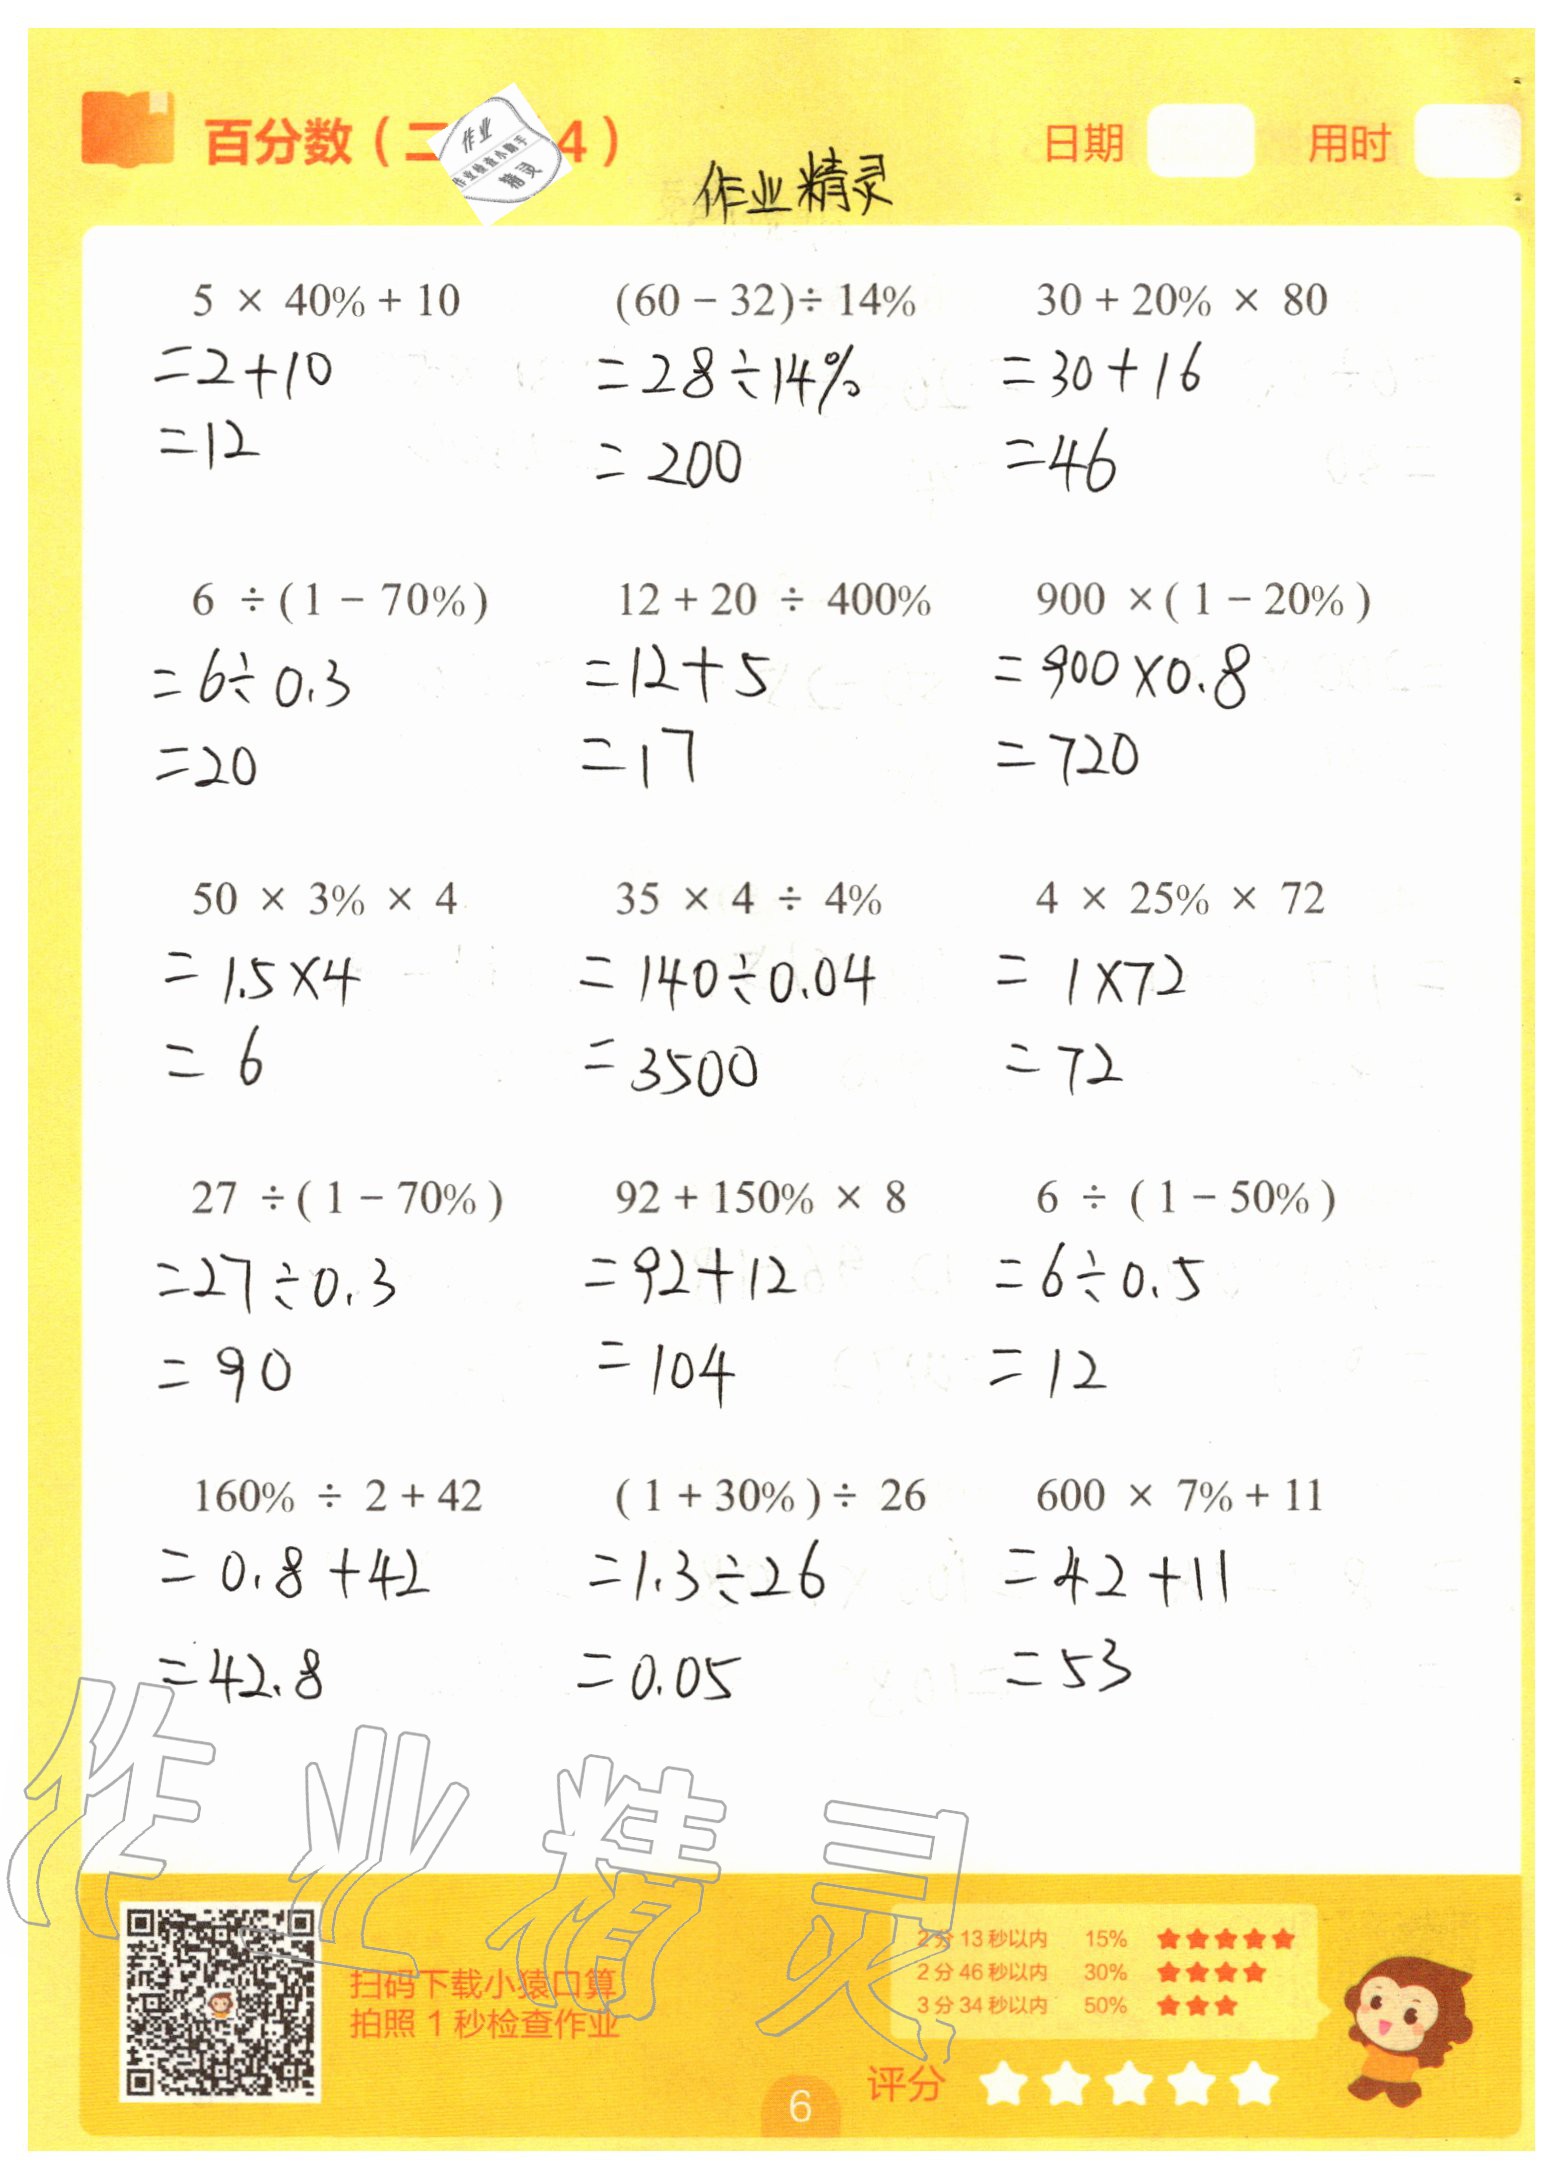 百分数（二 4）
日期 用时
作业
作业检查小助手
精灵
作业精灵
5 × 40% + 10 (60 − 32)÷ 14% 30 + 20% × 80
=2+10 =28÷14% =30+16
=12 =200 =46
6 ÷(1 − 70%) 12 + 20 ÷ 400% 900 ×(1 − 20%)
=6÷0.3 =12+5 =900×0.8
=20 =17 =720
50 × 3% × 4 35 × 4 ÷ 4% 4 × 25% × 72
=1.5×4 =140÷0.04 =1×72
=6 =3500 =72
27 ÷(1 − 70%) 92 + 150% × 8 6 ÷ (1 − 50%)
=27÷0.3 =92+12 =6÷0.5
=90 =104 =12
160% ÷ 2 + 42 (1 + 30%)÷ 26 600 × 7% + 11
=0.8+42 =1.3÷26 =42+11
=42.8 =0.05 =53
作业精灵
扫码下载小猿口算
拍照 1 秒检查作业
2 分 13 秒以内 15% ★★★★★
2 分 46 秒以内 30% ★★★★
3 分 34 秒以内 50% ★★★
评分 ☆☆☆☆☆
6